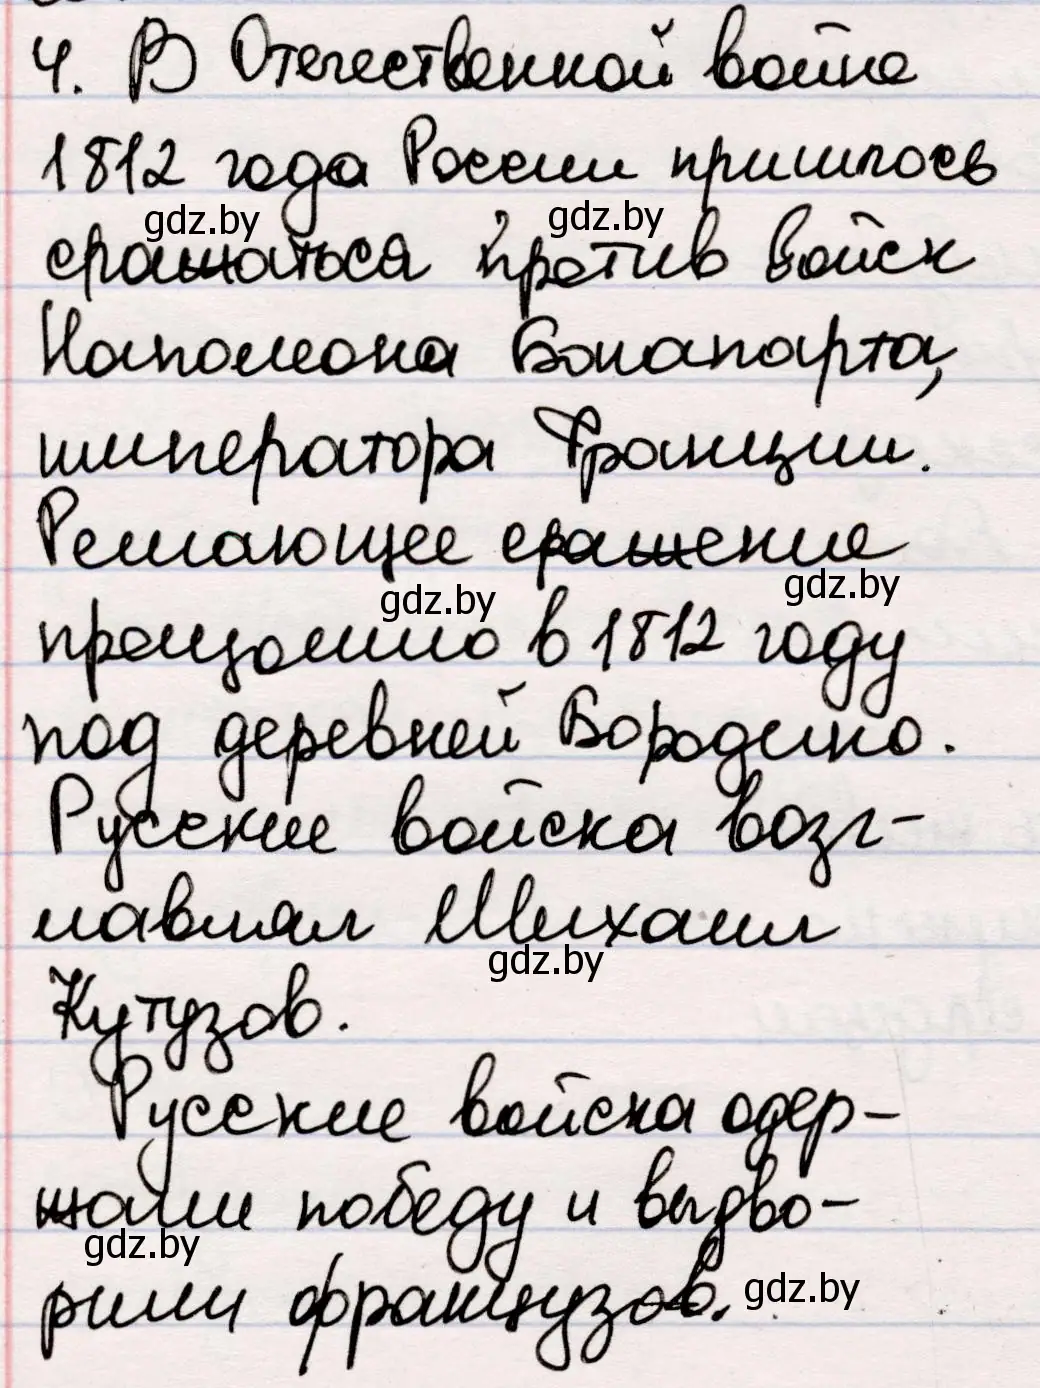 4. В Отечественной войне
1812 года России пришлось
gdz.by gdz.by
сражаться против войск
Наполеона Бонапарта,
императора Франции.
Решающее сражение
gdz.by gdz.by
произошло в 1812 году
под деревней Бородино.
Русские войска возг-
лавлял Михаил
gdz.by
Кутузов.
Русские войска одер-
жали победу и выдво-
gdz.by gdz.by
рили французов.